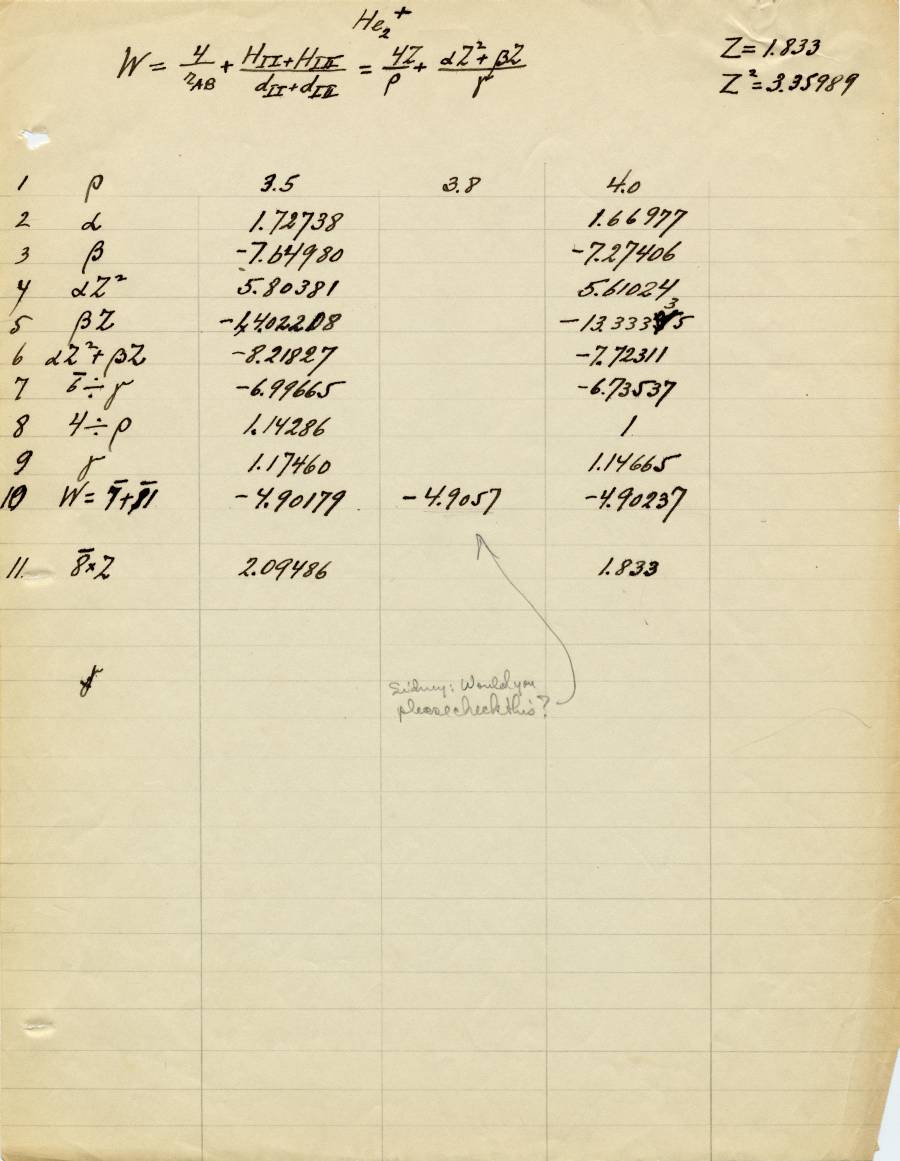 He₂⁺
W = 4/r_AB + (H_II + H_III)/(d_II + d_III) = 4Z/ρ + (αZ² + βZ)/γ
Z = 1.833
Z² = 3.35989
1 ρ 3.5 3.8 4.0
2 α 1.72738 1.66977
3 β -7.64980 -7.27406
4 αZ² 5.80381 5.61024
5 βZ -14.02208 -13.33335
6 αZ² + βZ -8.21827 -7.72311
7 6̄ ÷ γ -6.99665 -6.73537
8 4 ÷ ρ 1.14286 1
9 γ 1.17460 1.14665
10 W = 7̄ + 11 -4.90179 -4.9057 -4.90237
11. 8̄ × Z 2.09486 1.833
γ
Sidney: Would you
please check this?